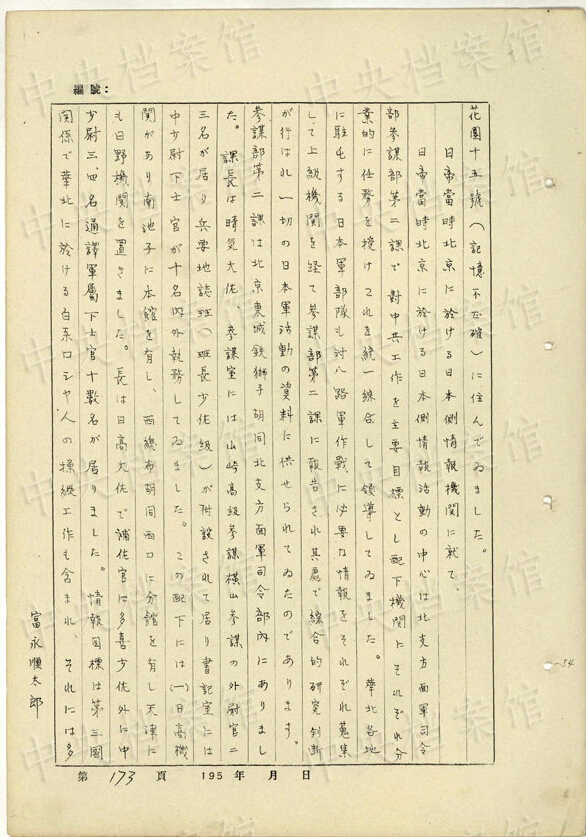 編號：
花園十五號（記憶不正確）に住んでゐました。
日帝當時北京に於ける日本側情報機関に就て、
日帝當時北京に於ける日本側情報活動の中心は北支方面軍司令
部参謀部第二課で對中共工作を主要目標とし配下機関にそれぞれ分
業的に任務を授けこれを統一綜合して領導してゐました。華北各地
に駐屯する日本軍部隊も対八路軍作戰に必要な情報をそれぞれ蒐集
して上級機関を経て参謀部第二課に報告され其處で綜合的研究判断
が行はれ一切の日本軍活動の資料に供せられてゐたのであります。
参謀部第二課は北京東城鉄獅子胡同北支方面軍司令部内にありまし
た。課長は時気大佐、参謀室には山崎高級参謀横山参謀の外尉官二
三名が居り兵要地誌班（班長少佐級）が附設されて居り書記室には
中少尉下士官が十名内外執務してゐました。この配下には（一）日高機
関があり南池子に本館を有し、西總布胡同西口に分館を有し天津に
も日野機関を置きました。長は日高大佐で補佐官は多喜少佐外に中
少尉三、四名通譯軍屬下士官十数名が居りました。情報目標は第三國
関係で華北に於ける白系ロシヤ人の操縦工作も含まれ、それには多
富永順太郎
第 173 頁 195 年 月 日
中央档案馆